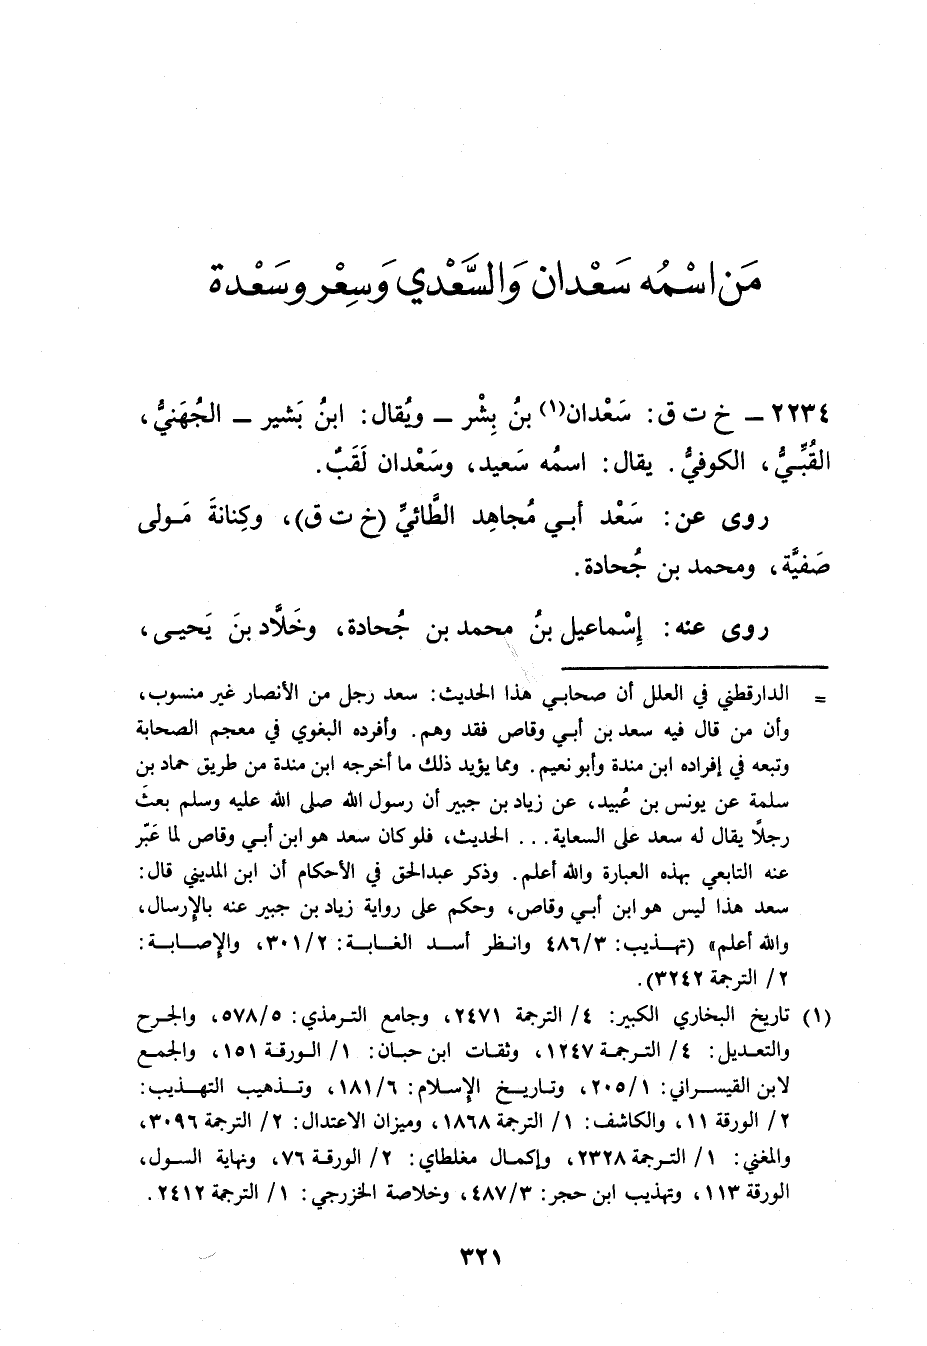 مَن اسْمُه سَعْدان وَالسَّعْدي وَسِعْر وسَعْدة
٢٢٣٤ ـ خ ت ق: سَعْدان(١) بنُ بِشْر ـ ويُقال: ابنُ بَشير ـ الجُهَنيُّ،
القُبِّيُّ، الكوفيُّ. يقال: اسمُه سَعيد، وسَعْدان لَقَبٌ.
روى عن: سَعْد أبي مُجاهِد الطَّائيِّ (خ ت ق)، وكِنانةَ مَولى
صَفيَّة، ومحمد بن جُحادة.
روى عنه: إِسْماعيل بنُ محمد بن جُحادة، وخَلَّاد بنَ يَحيى،
= الدارقطني في العلل أن صحابي هذا الحديث: سعد رجل من الأنصار غير منسوب،
وأن من قال فيه سعد بن أبي وقاص فقد وهم. وأفرده البغوي في معجم الصحابة
وتبعه في إفراده ابن مندة وأبو نعيم. ومما يؤيد ذلك ما أخرجه ابن مندة من طريق حماد بن
سلمة عن يونس بن عُبيد، عن زياد بن جبير أن رسول الله صلى الله عليه وسلم بعثَ
رجلًا يقال له سعد على السعاية... الحديث، فلو كان سعد هو ابن أبي وقاص لما عَبّر
عنه التابعي بهذه العبارة والله أعلم. وذكر عبدالحق في الأحكام أن ابن المديني قال:
سعد هذا ليس هو ابن أبي وقاص، وحكم على رواية زياد بن جبير عنه بالإرسال،
والله أعلم» (تهذيب: ٤٨٦/٣ وانظر أسد الغابة: ٣٠١/٢، والإصابة:
٢/ الترجمة ٣٢٤٢).
(١) تاريخ البخاري الكبير: ٤/ الترجمة ٢٤٧١، وجامع الترمذي: ٥٧٨/٥، والجرح
والتعديل: ٤/ الترجمة ١٢٤٧، وثقات ابن حبان: ١/ الورقة ١٥١، والجمع
لابن القيسراني: ٢٠٥/١، وتاريخ الإسلام: ١٨١/٦، وتذهيب التهذيب:
٢/ الورقة ١١، والكاشف: ١/ الترجمة ١٨٦٨، وميزان الاعتدال: ٢/ الترجمة ٣٠٩٦،
والمغني: ١/ الترجمة ٢٣٢٨، وإكمال مغلطاي: ٢/ الورقة ٧٦، ونهاية السول،
الورقة ١١٣، وتهذيب ابن حجر: ٤٨٧/٣، وخلاصة الخزرجي: ١/ الترجمة ٢٤١٢.
٣٢١